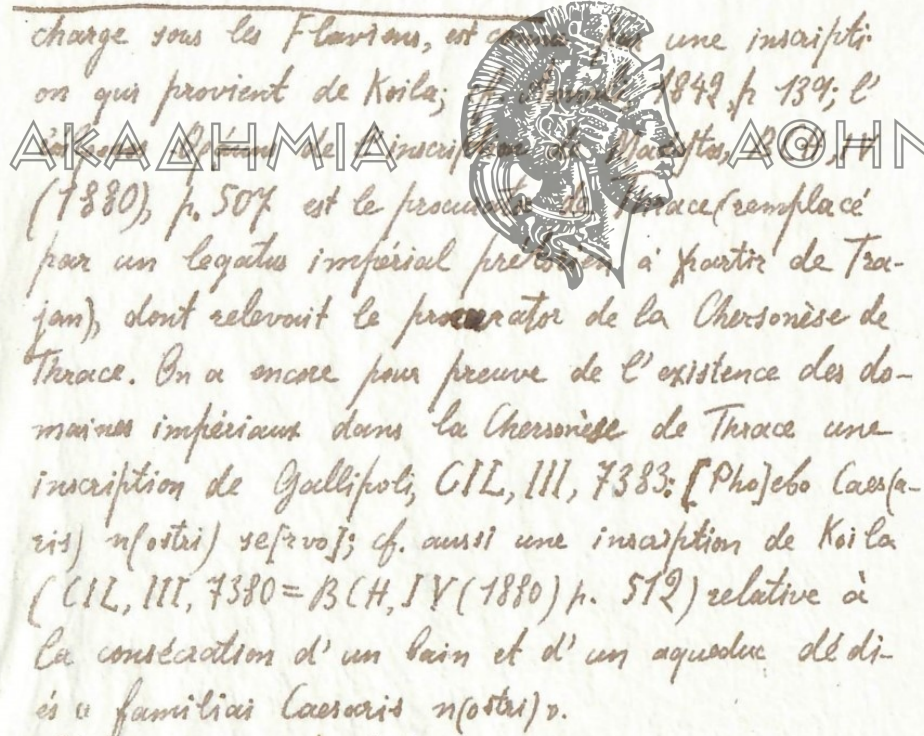 charge sous les Flaviens, est par une inscripti-
on qui provient de Koila; 1842, p. 139; l'
ΑΚΑΔΗΜΙΑ ΑΘΗΝ
de l'inscription de
(1880), p. 507 est le procurator de Thrace (remplacé
par un legatus impérial prétorien à partir de Tra-
jan), dont relevait le procurator de la Chersonèse de
Thrace. On a encore pour preuve de l'existence des do-
maines impériaux dans la Chersonèse de Thrace une
inscription de Gallipoli, CIL, III, 7383: [Pho]ebo Caes(a-
ris) n(ostri) se[rvo]; cf. aussi une inscription de Koila
(CIL, III, 7380 = BCH, IV (1880) p. 512) relative à
la consécration d'un bain et d'un aqueduc dédi-
és « familiai Caesaris n(ostri) ».